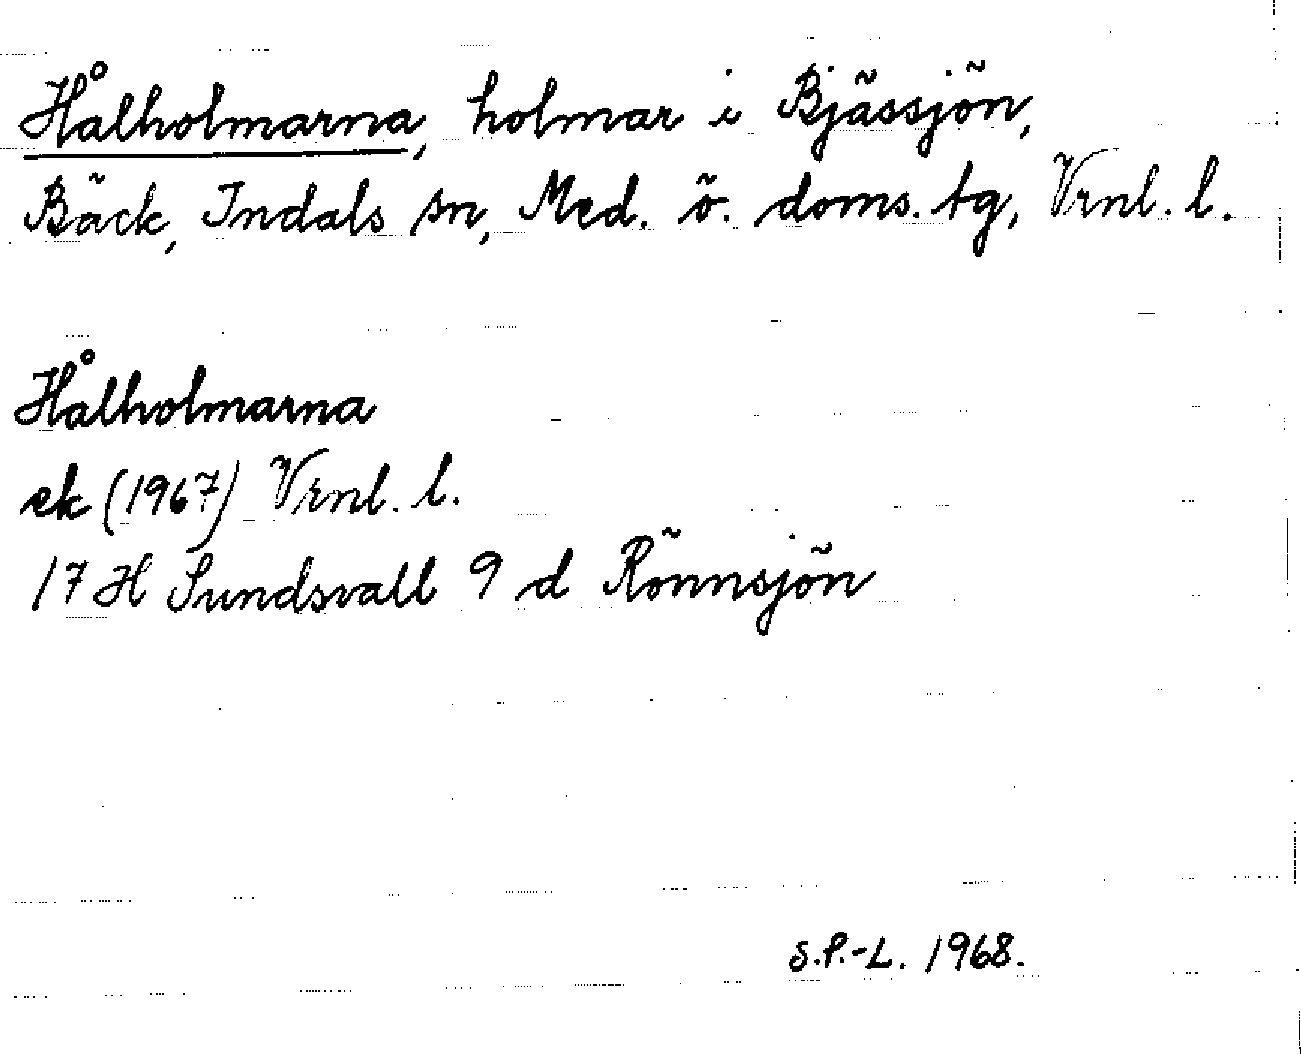 Hålholmarna, holmar i Bjässjön,
Bäck, Indals sn, Med. ö. doms. tg, Vrnl. l.
Hålholmarna
ek (1967) Vrnl. l.
17 H Sundsvall 9 d Rönnsjön
S.P.-L. 1968.